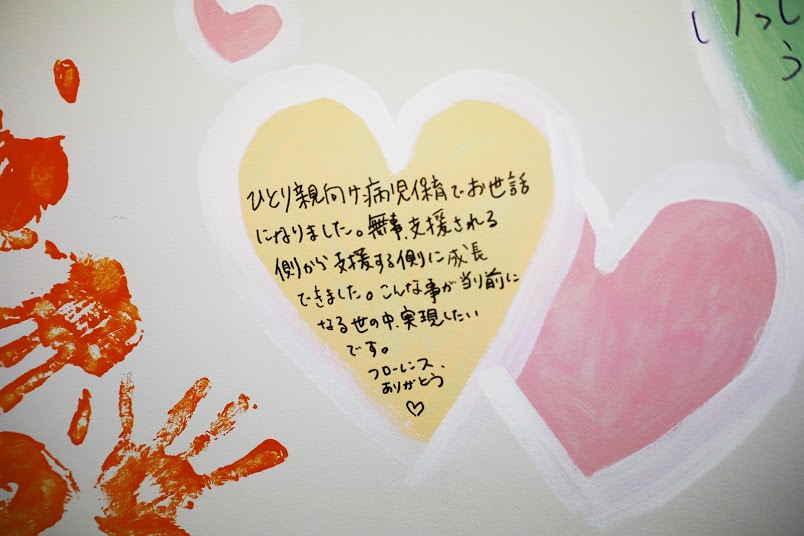 ひとり親向け病児保育でお世話
になりました。無事、支援される
側から支援する側に成長
できました。こんな事が当り前に
なる世の中、実現したい
です。
フローレンス、
ありがとう
♡
いっし
う